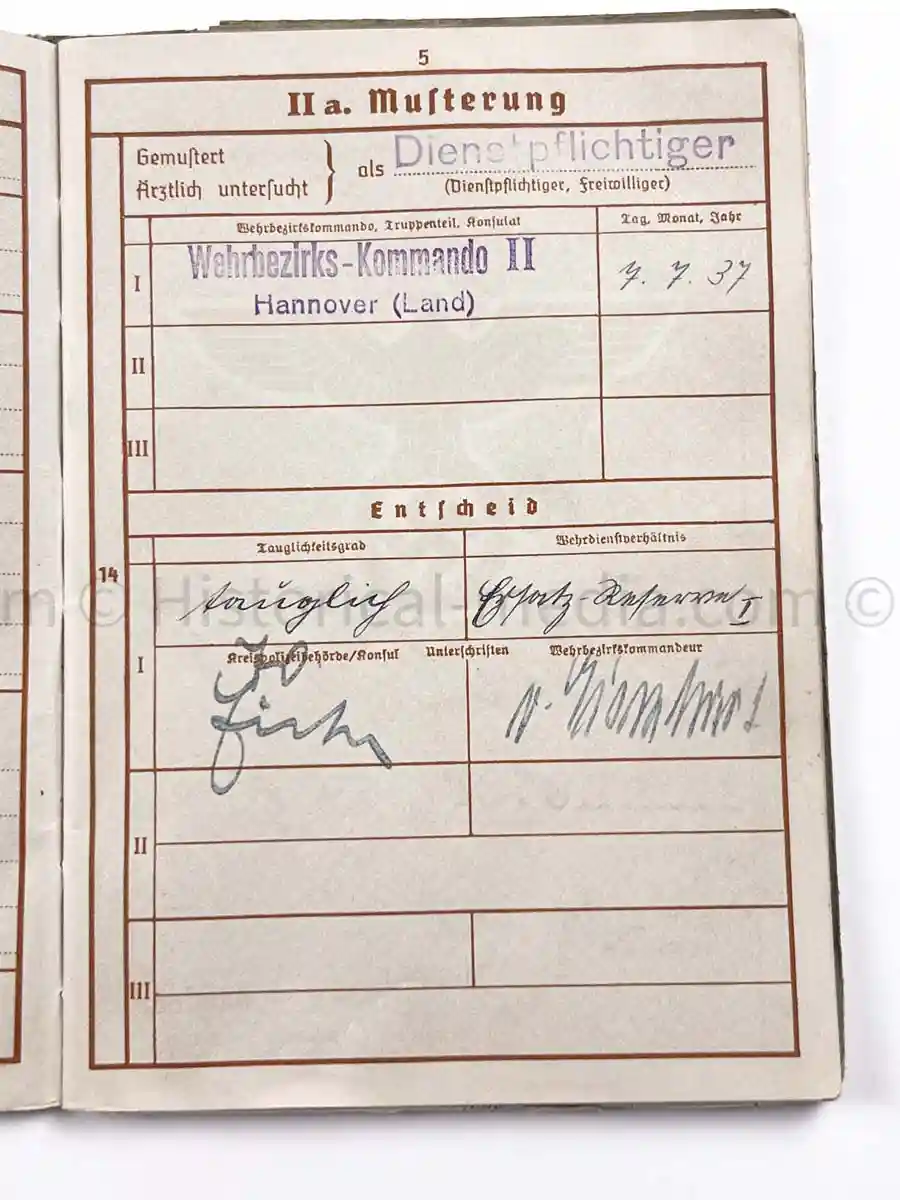 5
II a. Muſterung
Gemuſtert
Ärztlich unterſucht
als Dienstpflichtiger
(Dienſtpflichtiger, Freiwilliger)
Wehrbezirkskommando, Truppenteil, Konſulat
Tag, Monat, Jahr
I
Wehrbezirks-Kommando II
Hannover (Land)
7. 7. 37
II
III
Entſcheid
Tauglichkeitsgrad
Wehrdienſtverhältnis
14
tauglich
Ersatz Reserve I
© Historical-Media.com ©
I
Kreispolizeibehörde/Konſul
Unterſchriften
Wehrbezirkskommandeur
II
III